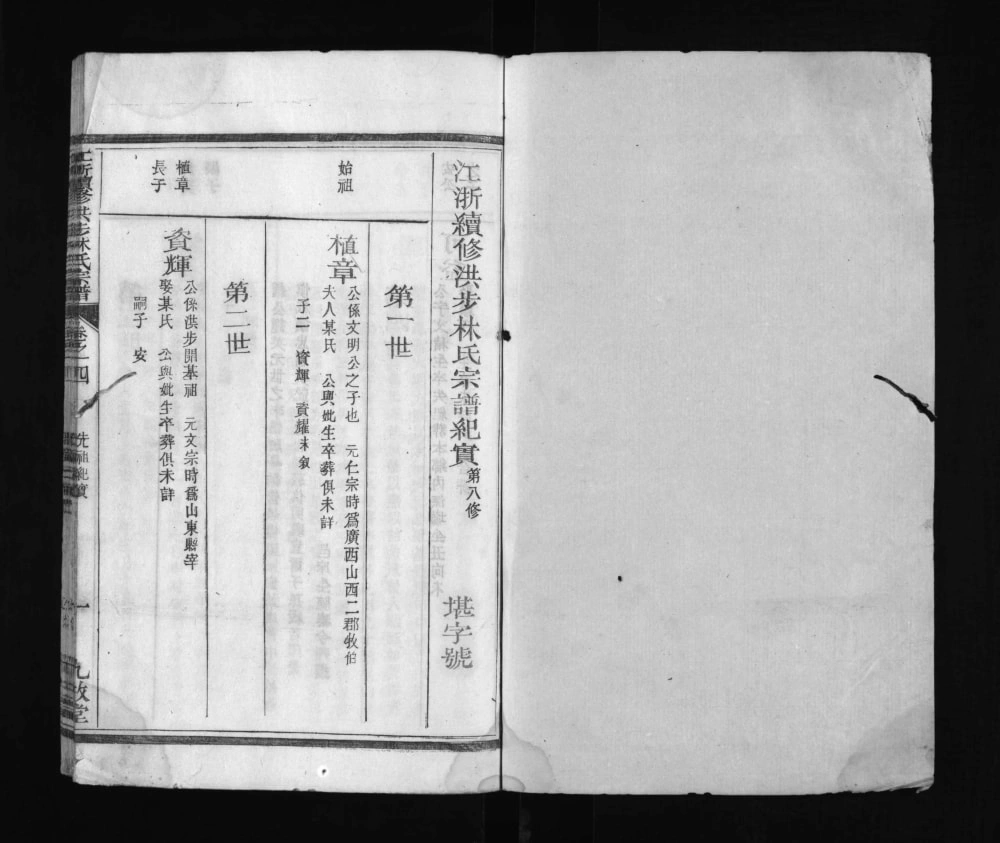 江浙續修洪步林氏宗譜紀實 第八修 堪字號
第一世
始祖
植章 公係文明公之子也 元仁宗時爲廣西山西二郡牧伯
夫人某氏 公與妣生卒葬俱未詳
子二 資輝 資耀未敘
第二世
植章
長子
資輝 公係洪步開基祖 元文宗時爲山東縣宰
娶某氏 公與妣生卒葬俱未詳
嗣子 安
江浙續修洪步林氏宗譜 卷之四 先祖紀實 一 九牧堂